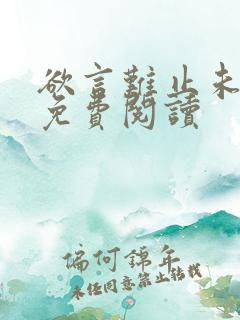 欲言難止未
免費閱讀
偏何錦年
未經同意禁止轉載